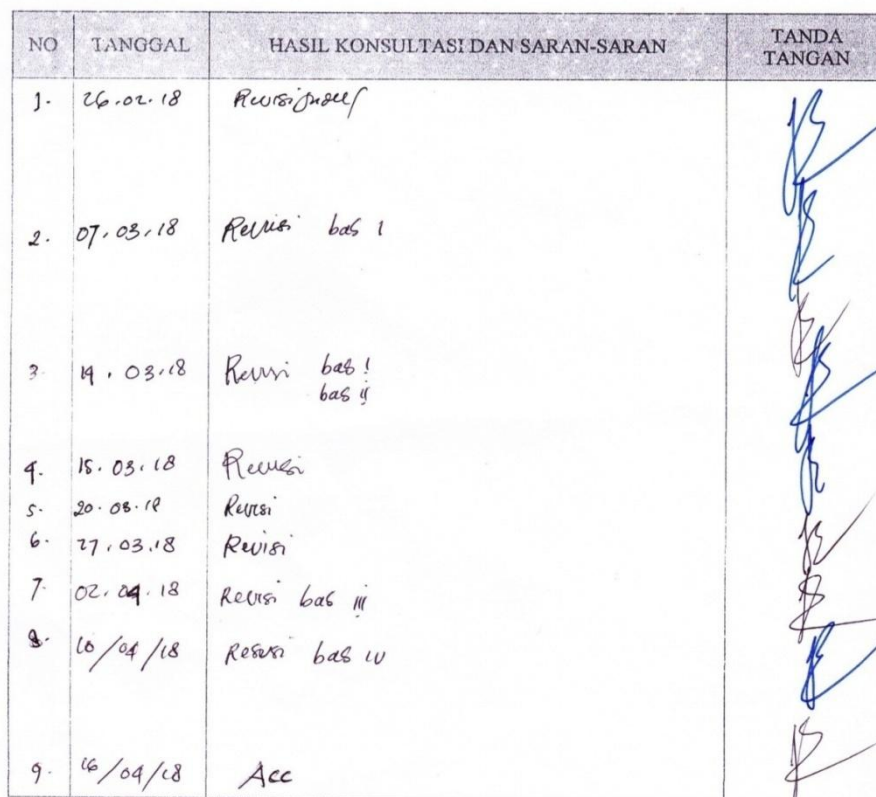 NO TANGGAL HASIL KONSULTASI DAN SARAN-SARAN TANDA TANGAN
1. 26.02.18 Revisi
2. 07.03.18 Revisi bab I
3. 14.03.18 Revisi bab I
bab II
4. 15.03.18 Revisi
5. 20.03.18 Revisi
6. 27.03.18 Revisi
7. 02.04.18 Revisi bab III
8. 10/04/18 Revisi bab IV
9. 16/04/18 Acc